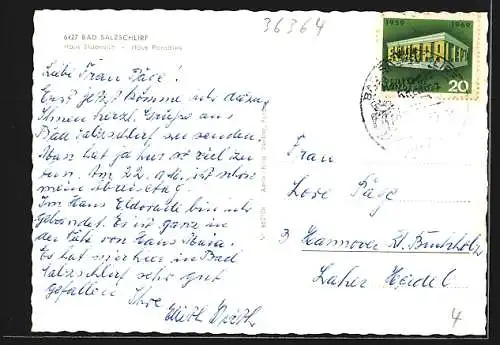 6427 BAD SALZSCHLIRF
Haus Eldorado - Haus Paradies
36364
1959 1969
20
Liebe Frau Päge!
Erst jetzt komme ich dazu,
Ihnen herzl. Grüße aus
Bad Salzschlirf zu senden.
Man hat ja hier so viel zu
tun. Am 22. ist schon
mein Abreisetag.
Im Haus Eldorado bin ich
gelandet. Es ist ganz in
der Nähe von Haus Maria.
Es hat mir hier in Bad
Salzschlirf sehr gut
gefallen. Ihre
Frau
Lore Päge
3 Hannover Kl. Buchholz
Laher Heide
4